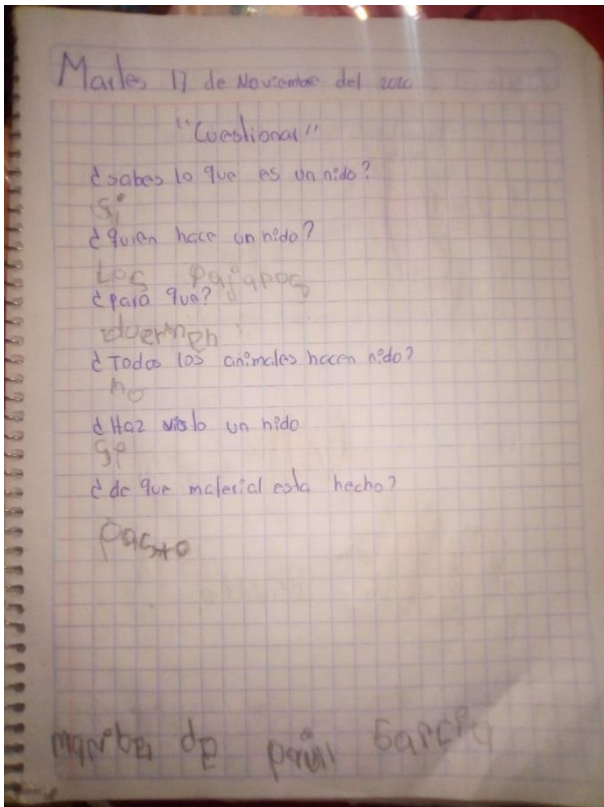 Martes 17 de Noviembre del 2020
"Cuestionar"
¿sabes lo que es un nido?
Si
¿quien hace un nido?
Los pajaros
¿para que?
duermen
¿Todos los animales hacen nido?
no
¿Haz visto un nido
si
¿de que material esta hecho?
pasto
García